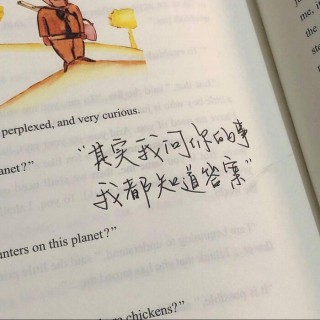 perplexed, and very curious.
"其实我问你的事
anet?"
我都知道答案"
nters on this planet?"
chickens?"
me, i
the